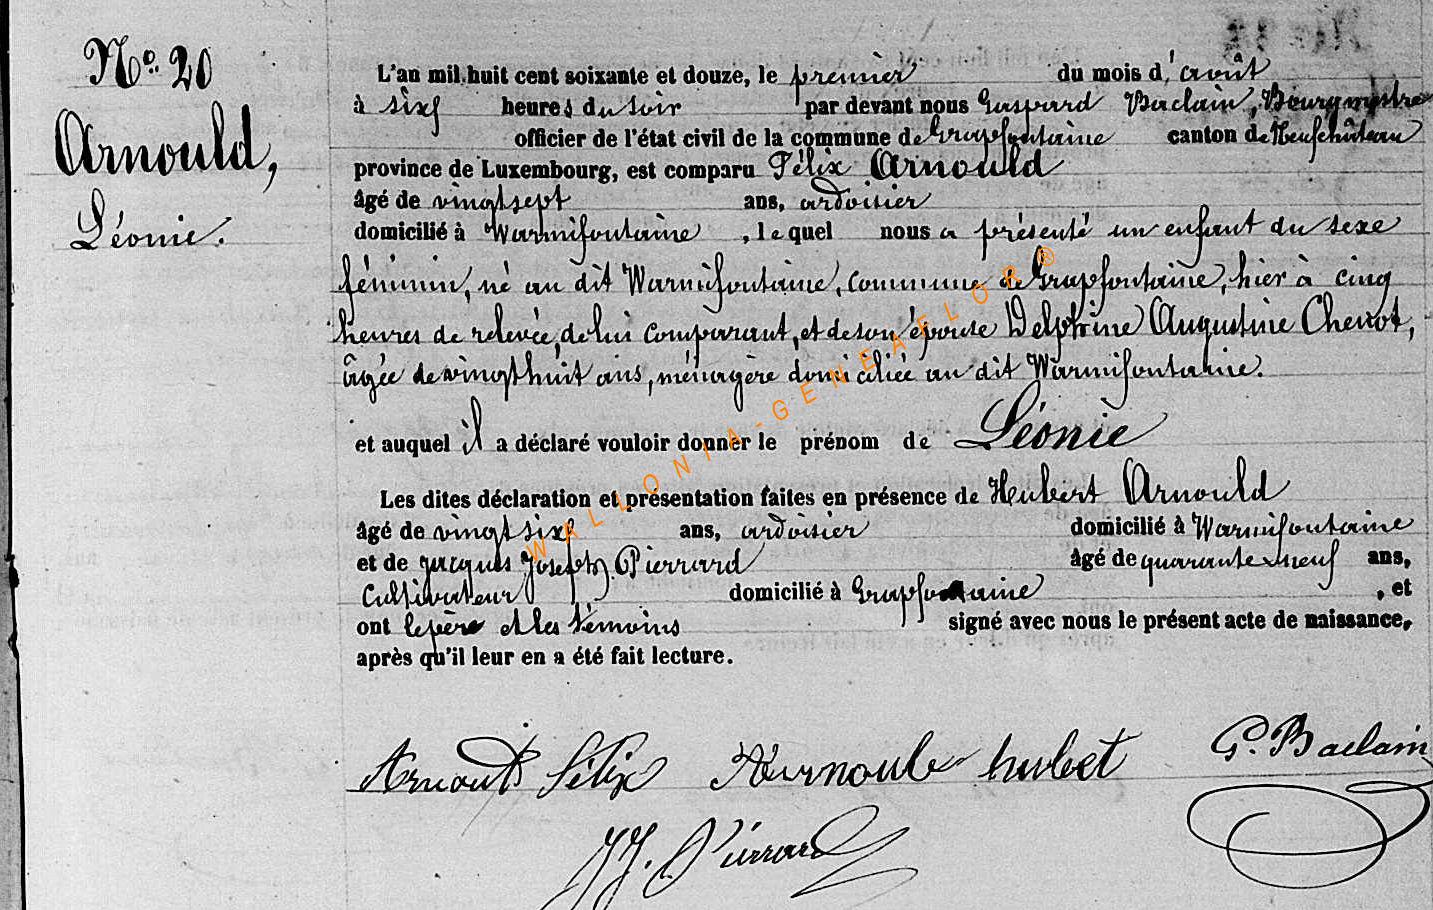 No. 20
Arnould,
Léonie.
L'an mil huit cent soixante et douze, le premier du mois d'août
à six heures du soir par devant nous Gaspard Baclain, Bourgmestre
officier de l'état civil de la commune de Grapfontaine canton de Neufchâteau
province de Luxembourg, est comparu Félix Arnould
âgé de vingtsept ans, ardoisier
domicilié à Warmifontaine, lequel nous a présenté un enfant du sexe
féminin, né au dit Warmifontaine, commune de Grapfontaine, hier à cinq
heures de relevée, de lui comparant, et de son épouse Delphine Augustine Chenot,
âgée de vingthuit ans, ménagère domiciliée au dit Warmifontaine.
et auquel il a déclaré vouloir donner le prénom de Léonie
Les dites déclaration et présentation faites en présence de Hubert Arnould
âgé de vingtsix ans, ardoisier domicilié à Warmifontaine
et de Jacques Joseph Pierrard âgé de quarante neuf ans,
Cultivateur domicilié à Grapfontaine, et
ont le père et les témoins signé avec nous le présent acte de naissance,
après qu'il leur en a été fait lecture.
WALLONIA-GENEAFLOR®
Arnould Félix Arnould hubet G. Baclain
JJ. Pierrard